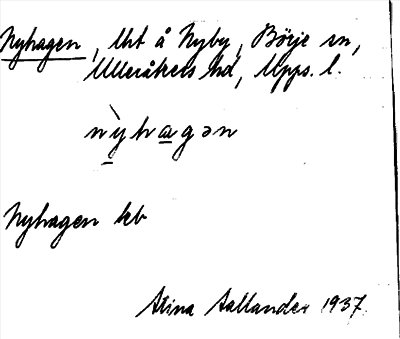 Nyhagen, lht å Nyby, Börje sn,
Ulleråkers hd, Upps. l.
nỳhagən
Nyhagen kb
Stina Aallander 1937.